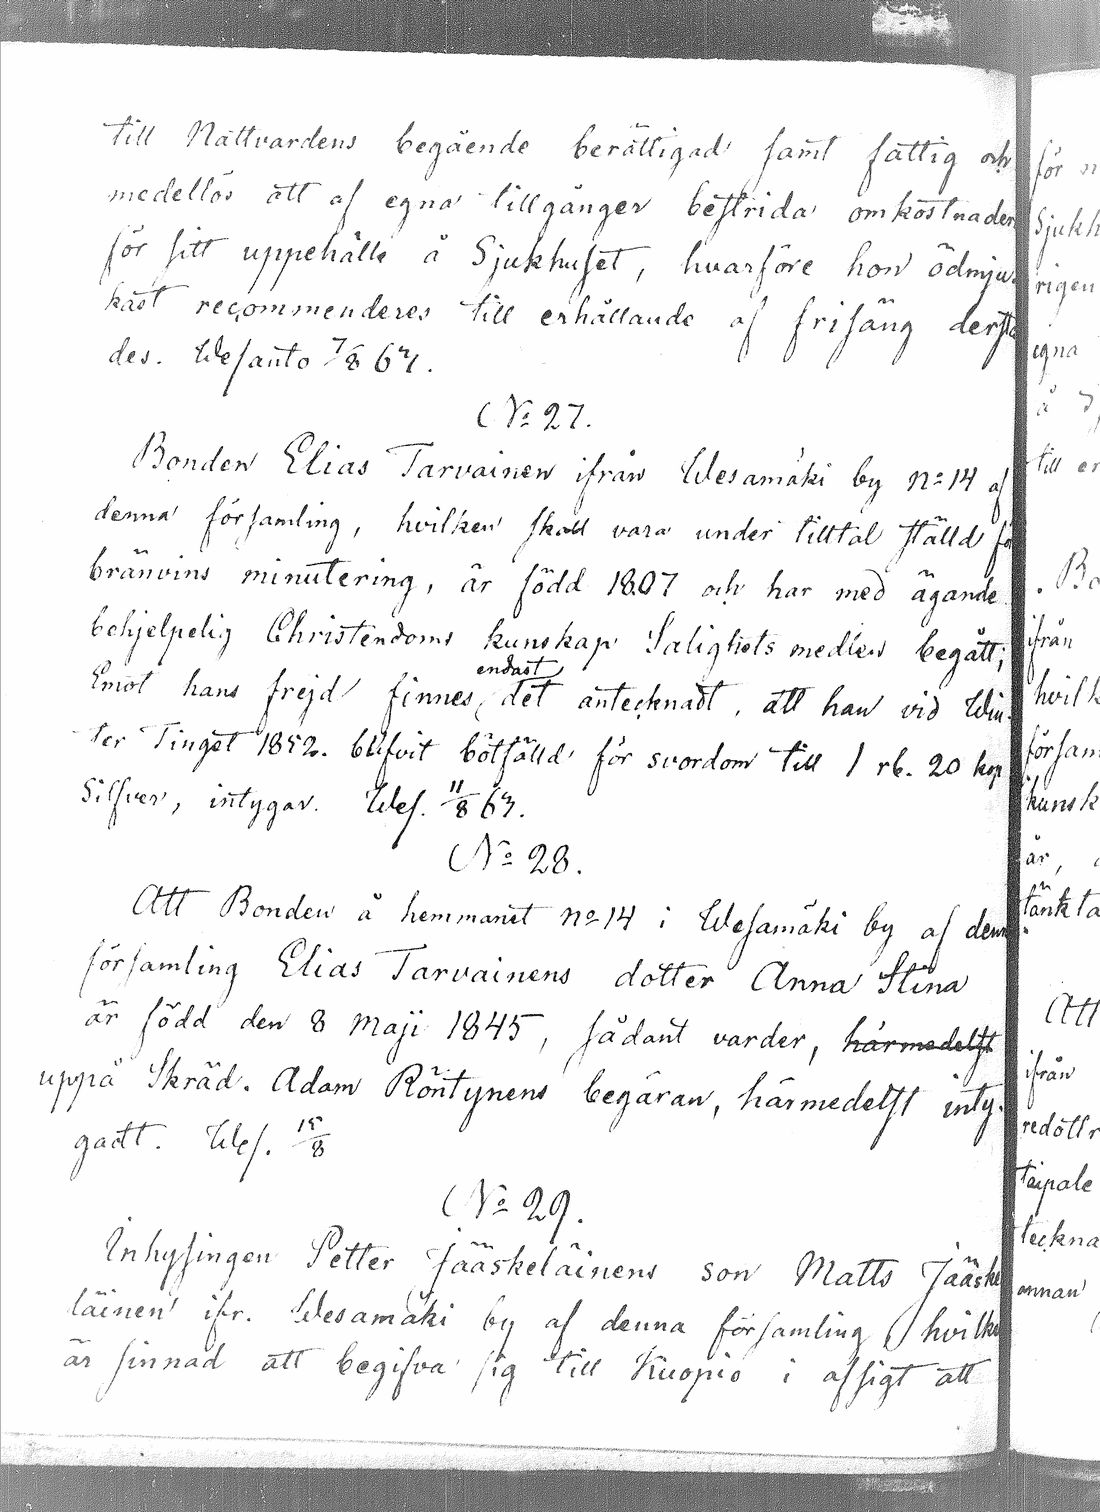 till Nattvardens begående berättigad samt fattig och
medellös att af egna tillgånger bestrida omkostnader
för sitt uppehälle å Sjukhuset, hvarföre hon ödmju-
kast recommenderes till erhållande af frisäng derstä
des. Wesanto 7/8 63.
No 27.
Bonden Elias Tarvainen ifrån Wesamäki by no 14 af
denna församling, hvilken skall vara under tilltal ställd fö
bränvins minutering, är född 1807 och har med ägande
behjelpelig Christendoms kunskap Salighets medlen begått;
Emot hans frejd finnes endast det antecknadt, att han vid Win-
ter Tinget 1852. blifvit bötfälld för svordom till 1 rb. 20 kop
Silfver, intygar. Wes. 11/8 63.
No 28.
Att Bonden å hemmanet no 14 i Wesamäki by af denna
församling Elias Tarvainens dotter Anna Stina
är född den 8 Maji 1845, sådant varder, härmedelst
uppå Skräd. Adam Röntynens begäran, härmedelst inty-
gadt. Wes. 15/8
No 29.
Inhysingen Petter Jääskeläinens son Matts Jääske
läinen ifr. Wesamäki by af denna församling, hvilken
är sinnad att begifva sig till Kuopio i afsigt att
för
Sjukh
rigen
egna
å
till er
Bo
ifrån
hvilk
försam
kunsk
är,
tänkta
Att
ifrån
redottr
taipale
teckna
annan